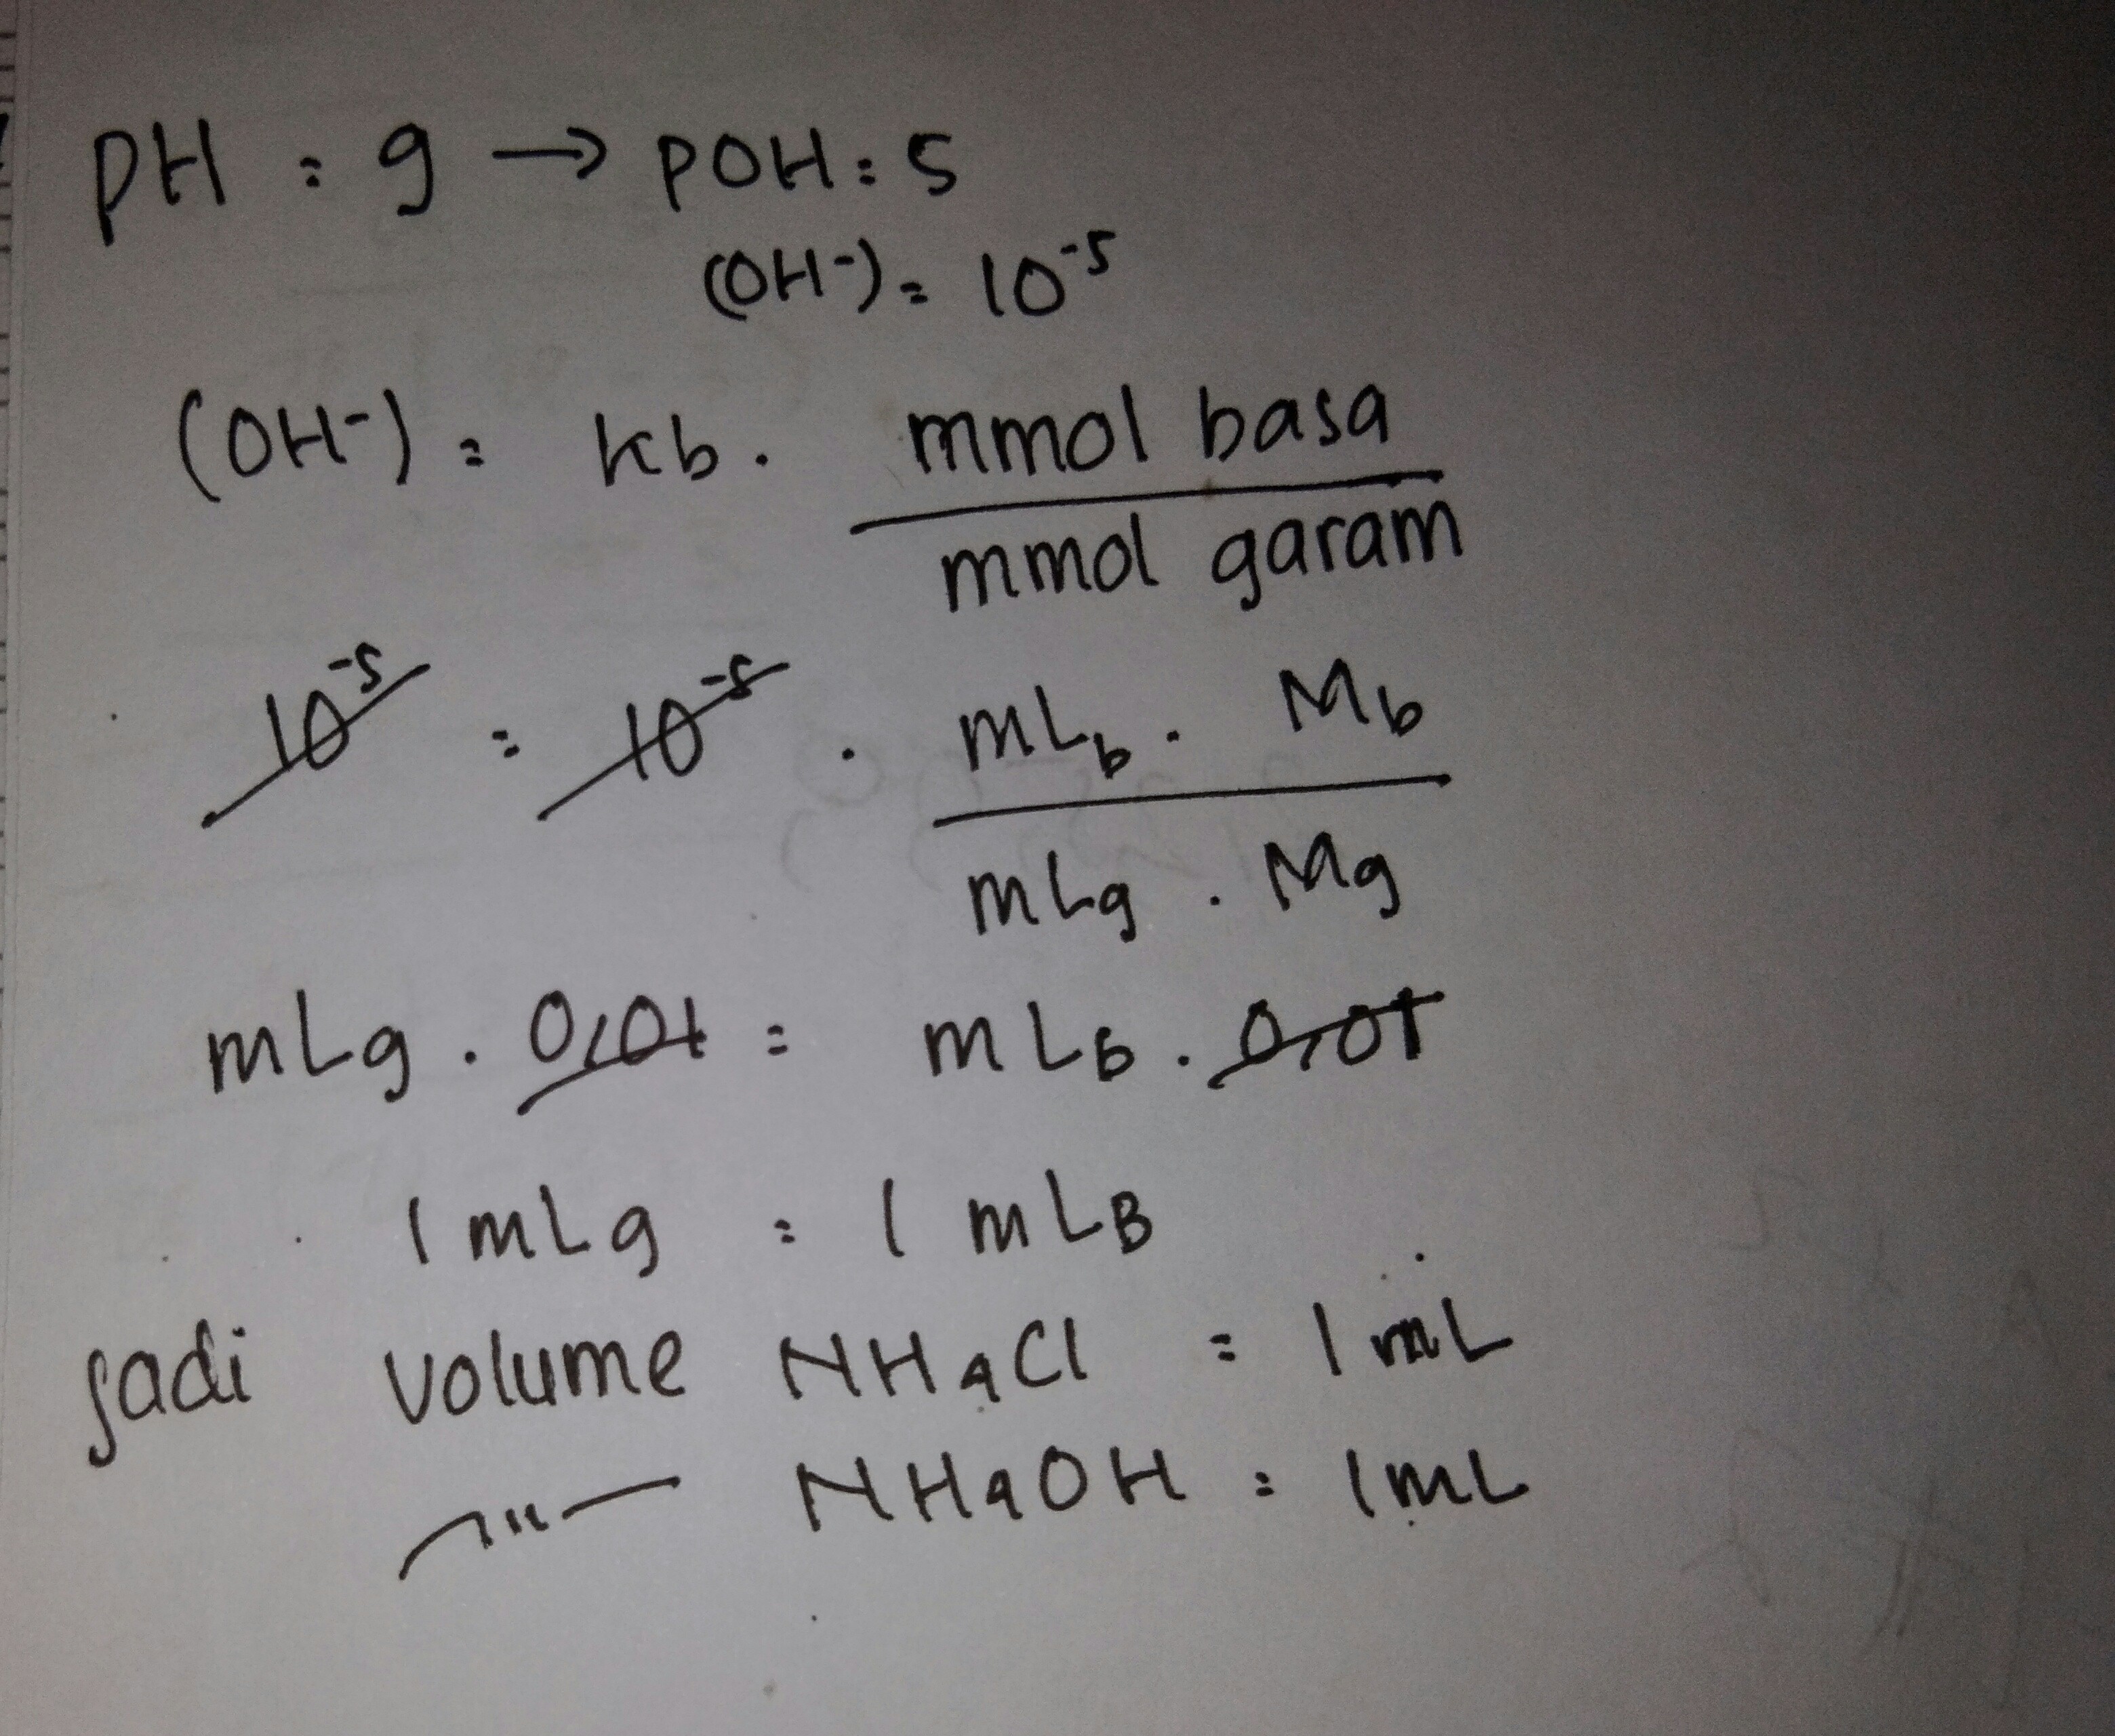 PH = 9 → POH = 5
(OH-) = 10^-5
(OH-) = kb . mmol basa
mmol garam
10^-5 = 10^-5 . mLb . Mb
mLg . Mg
mLg . 0,01 = mLB . 0,01
1 mLg = 1 mLB
jadi volume NH4Cl = 1 mL
—"— NH4OH = 1 mL